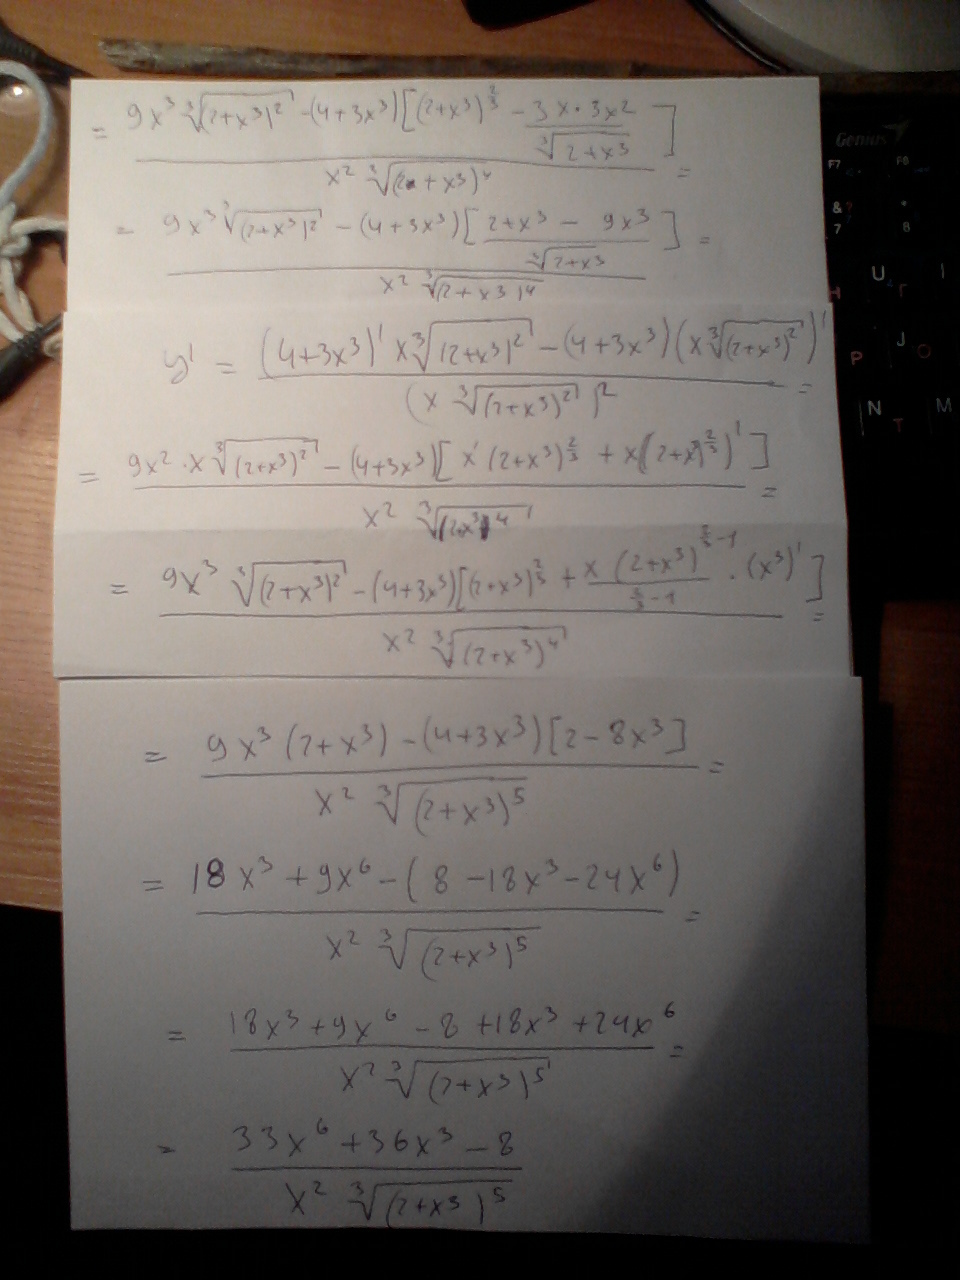 = \frac{9x^3 \sqrt[3]{(2+x^3)^2} - (4+3x^3)[(2+x^3)^{\frac{2}{3}} - \frac{3x \cdot 3x^2}{\sqrt[3]{2+x^3}}]}{x^2 \sqrt[3]{(2+x^3)^4}} =
= \frac{9x^3 \sqrt[3]{(2+x^3)^2} - (4+3x^3)[\frac{2+x^3 - 9x^3}{\sqrt[3]{2+x^3}}]}{x^2 \sqrt[3]{(2+x^3)^4}} =
y' = \frac{(4+3x^3)' x \sqrt[3]{(2+x^3)^2} - (4+3x^3)(x \sqrt[3]{(2+x^3)^2})'}{(x \sqrt[3]{(2+x^3)^2})^2} =
= \frac{9x^2 \cdot x \sqrt[3]{(2+x^3)^2} - (4+3x^3)[x'(2+x^3)^{\frac{2}{3}} + x((2+x^3)^{\frac{2}{3}})']}{x^2 \sqrt[3]{(2+x^3)^4}} =
= \frac{9x^3 \sqrt[3]{(2+x^3)^2} - (4+3x^3)[(2+x^3)^{\frac{2}{3}} + \frac{x (2+x^3)^{\frac{2}{3}-1}}{\frac{2}{3}-1} \cdot (x^3)']}{x^2 \sqrt[3]{(2+x^3)^4}} =
= \frac{9x^3 (2+x^3) - (4+3x^3)[2-8x^3]}{x^2 \sqrt[3]{(2+x^3)^5}} =
= \frac{18x^3 + 9x^6 - (8 - 18x^3 - 24x^6)}{x^2 \sqrt[3]{(2+x^3)^5}} =
= \frac{18x^3 + 9x^6 - 8 + 18x^3 + 24x^6}{x^2 \sqrt[3]{(2+x^3)^5}} =
= \frac{33x^6 + 36x^3 - 8}{x^2 \sqrt[3]{(2+x^3)^5}}
Genius
F7 F8
& ? 7 * 8
U Г I
J О
P
N Т M